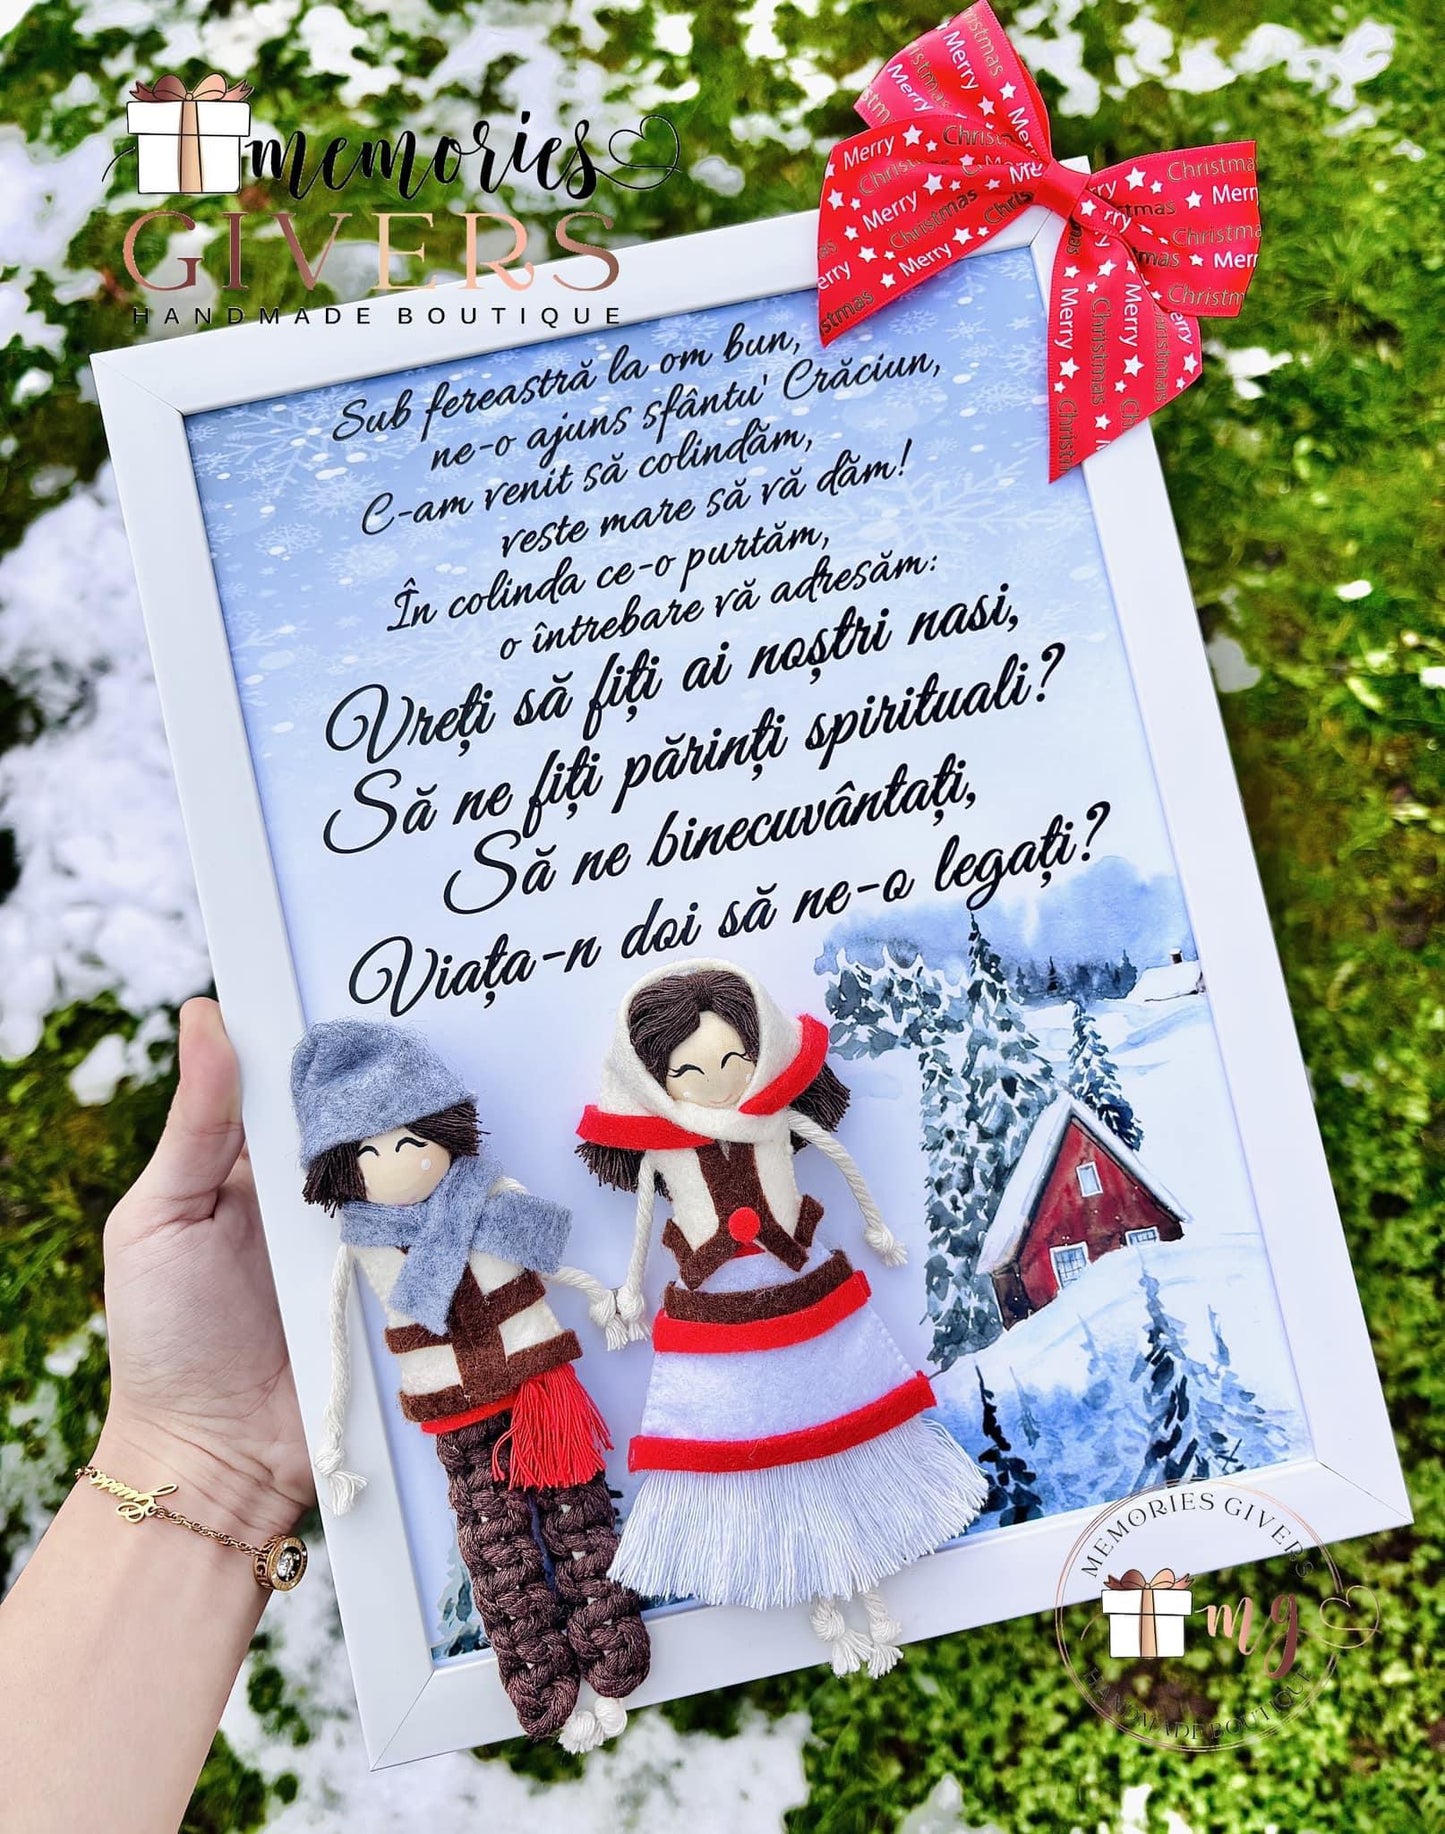 memories
GIVERS
HANDMADE BOUTIQUE
Merry Christmas
Sub fereastră la om bun,
ne-o ajuns sfântu' Crăciun,
C-am venit să colindăm,
veste mare să vă dăm!
În colinda ce-o purtăm,
o întrebare vă adresăm:
Vreți să fiți ai noștri nasi,
Să ne fiți părinți spirituali?
Să ne binecuvântați,
Viața-n doi să ne-o legați?
MEMORIES GIVERS
mg
HANDMADE BOUTIQUE